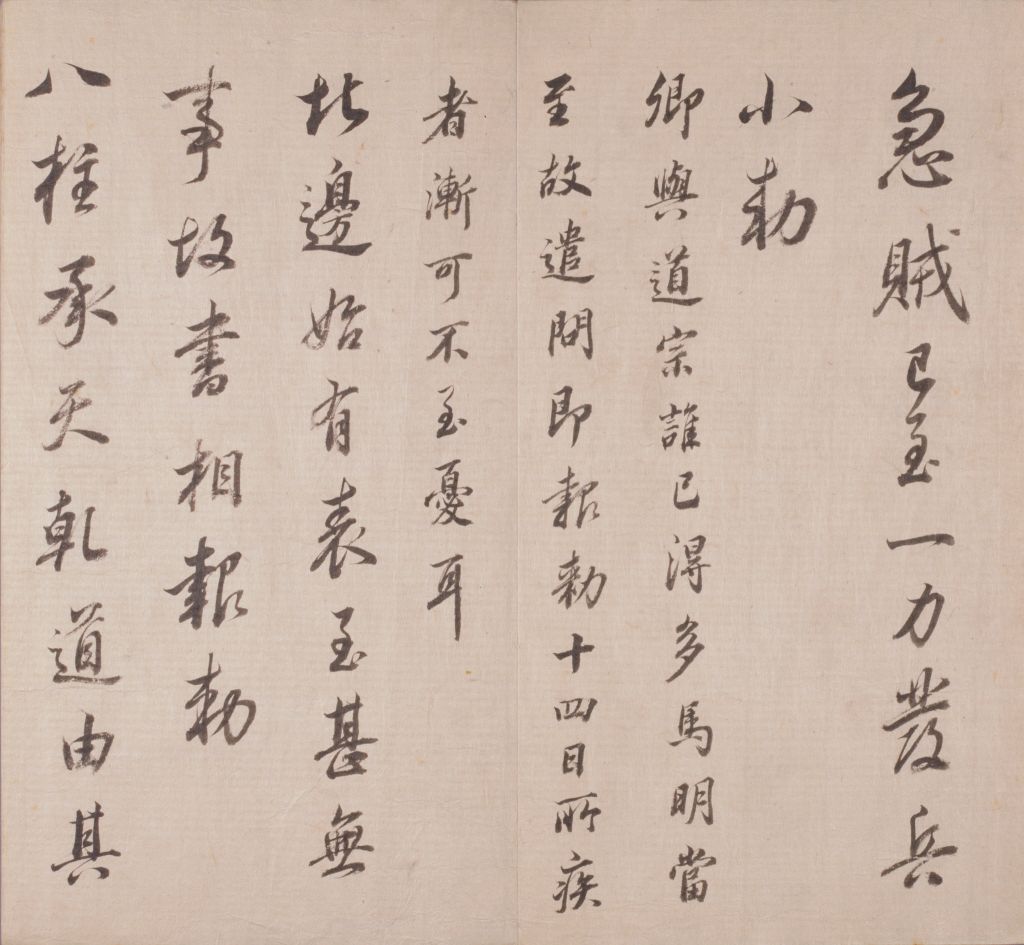 急賊已至一力發兵
小勅
卿與道宗誰已得多馬明當
至故遣問即報勅十四日所疾
者漸可不至憂耳
北邊始有表至甚無
事故書相報勅
八柱承天乾道由其